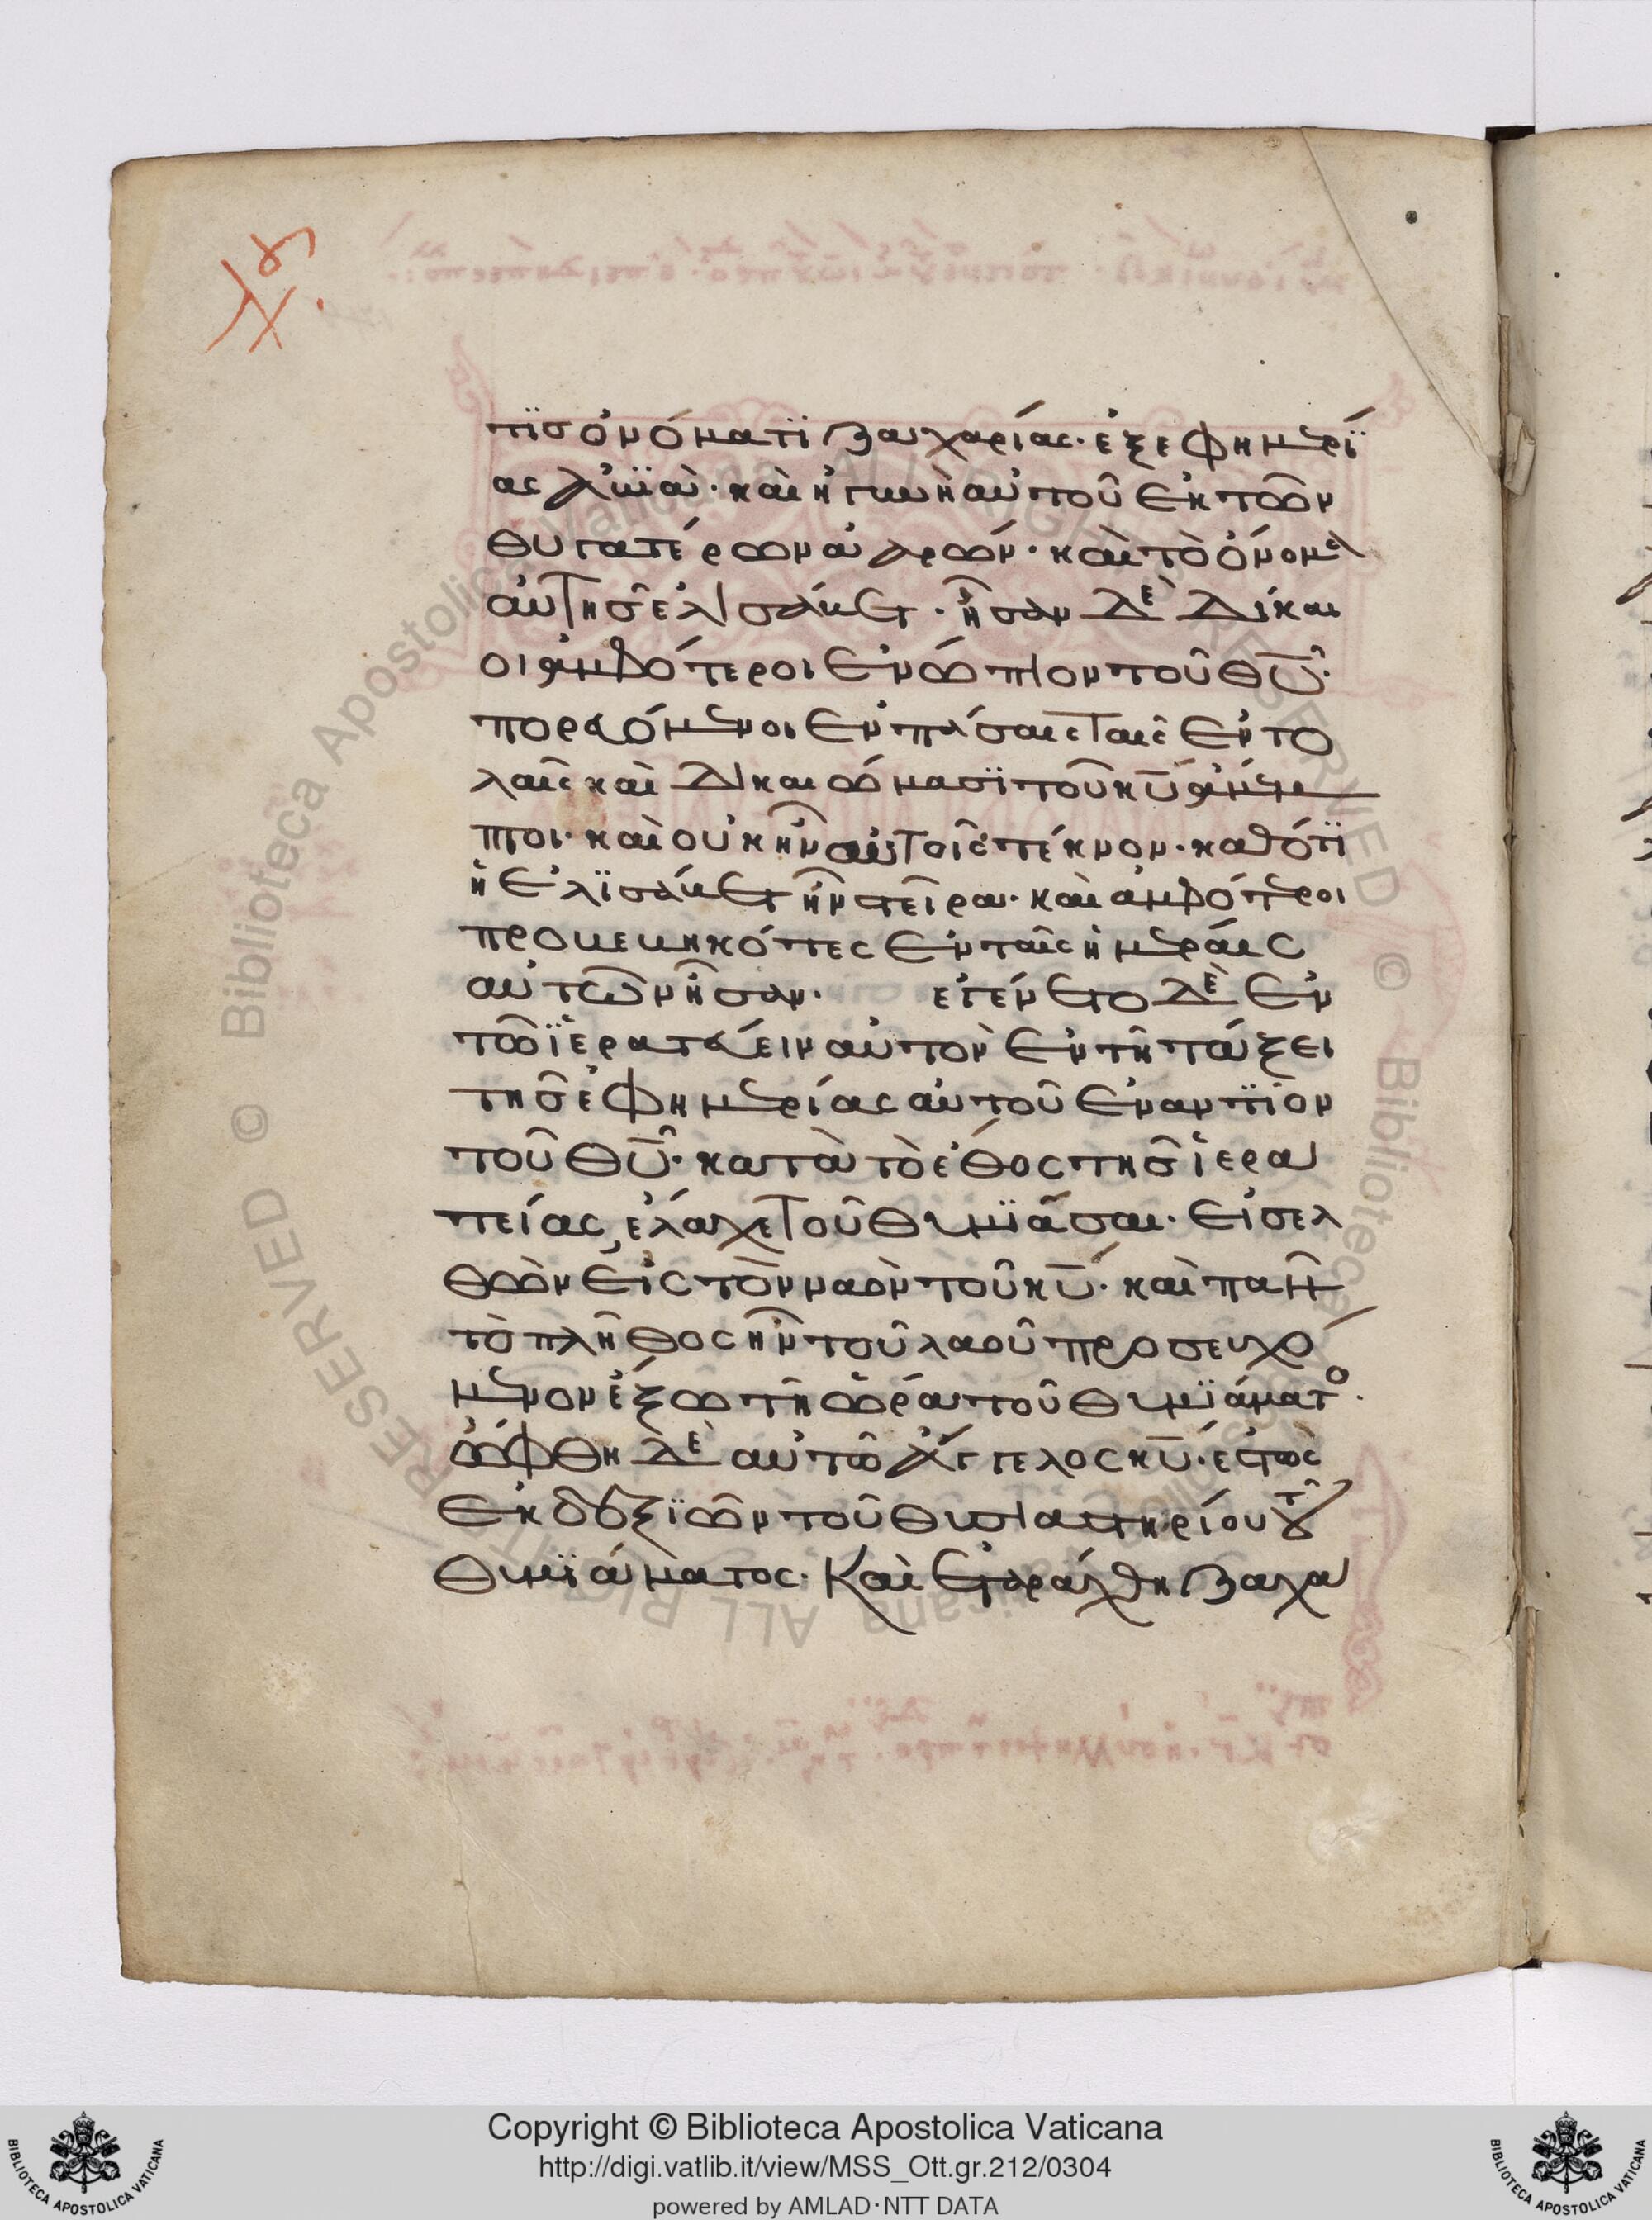 τϊσ ὀνόματϊ ζαχαρίας· ἐξ ἐφημερί
ας ἀβϊά· καὶ ἡ γυνὴ αὐτοῦ ἐκ τῶν
θυγατέρων ἀαρών· καὶ τὸ ὄνομα
αὐτῆσ ἐλισάβετ· ἦσαν δὲ δίκαι
οι ἀμφότεροι ἐνώπιον τοῦ θυ̅·
πορευόμενοι ἐν πάσαις ταῖς ἐντο
λαῖς καὶ δικαιώμασϊ τοῦ κυ̅ ἄμεμ
πτοι· καὶ οὐκ ἦν αὐτοῖς τέκνον· καθότϊ
ἡ ἐλϊσάβετ ἦν στεῖρα· καὶ ἀμφότεροι
προβεβηκότες ἐν ταῖς ἡμέραις
αὐτῶν ἦσαν· ἐγένετο δὲ ἐν
τῶ ἱερατεύειν αὐτὸν ἐν τῆ τάξει
τῆσ ἐφημερίας αὐτοῦ ἐναντϊον
τοῦ θυ̅· κατὰ τὸ ἔθος τῆσ ἱερα
τείας, ἔλαχε τοῦ θυμϊᾶσαι· εἰσελ
θὼν εἰς τὸν ναὸν τοῦ κυ̅· καὶ πᾶν
τὸ πλῆθος ἦν τοῦ λαοῦ προσευχό
μενον ἔξω τῆ ὥρα τοῦ θυμϊάματο·
ὤφθη δὲ αὐτῶ ἄγγελος κυ̅· ἑστὼς
ἐκ δεξϊῶν τοῦ θυσιαστηρίου τοῦ
θυμϊάματος· Καὶ ἐταράχθη ζαχα
Copyright © Biblioteca Apostolica Vaticana
http://digi.vatlib.it/view/MSS_Ott.gr.212/0304
powered by AMLAD·NTT DATA
BIBLIOTECA APOSTOLICA VATICANA
BIBLIOTECA APOSTOLICA VATICANA